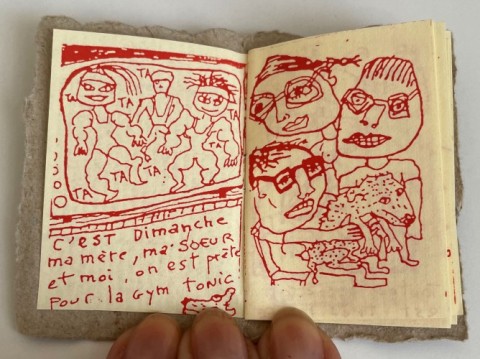 TA
TA
TA
TA
TA
TA
C'EST Dimanche
ma mère, ma SOEUR
et moi, on est prête
POUR la Gym TONIC!